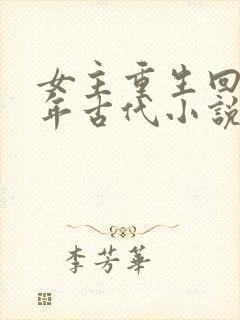 女主重生回
年古代小說
李芳華